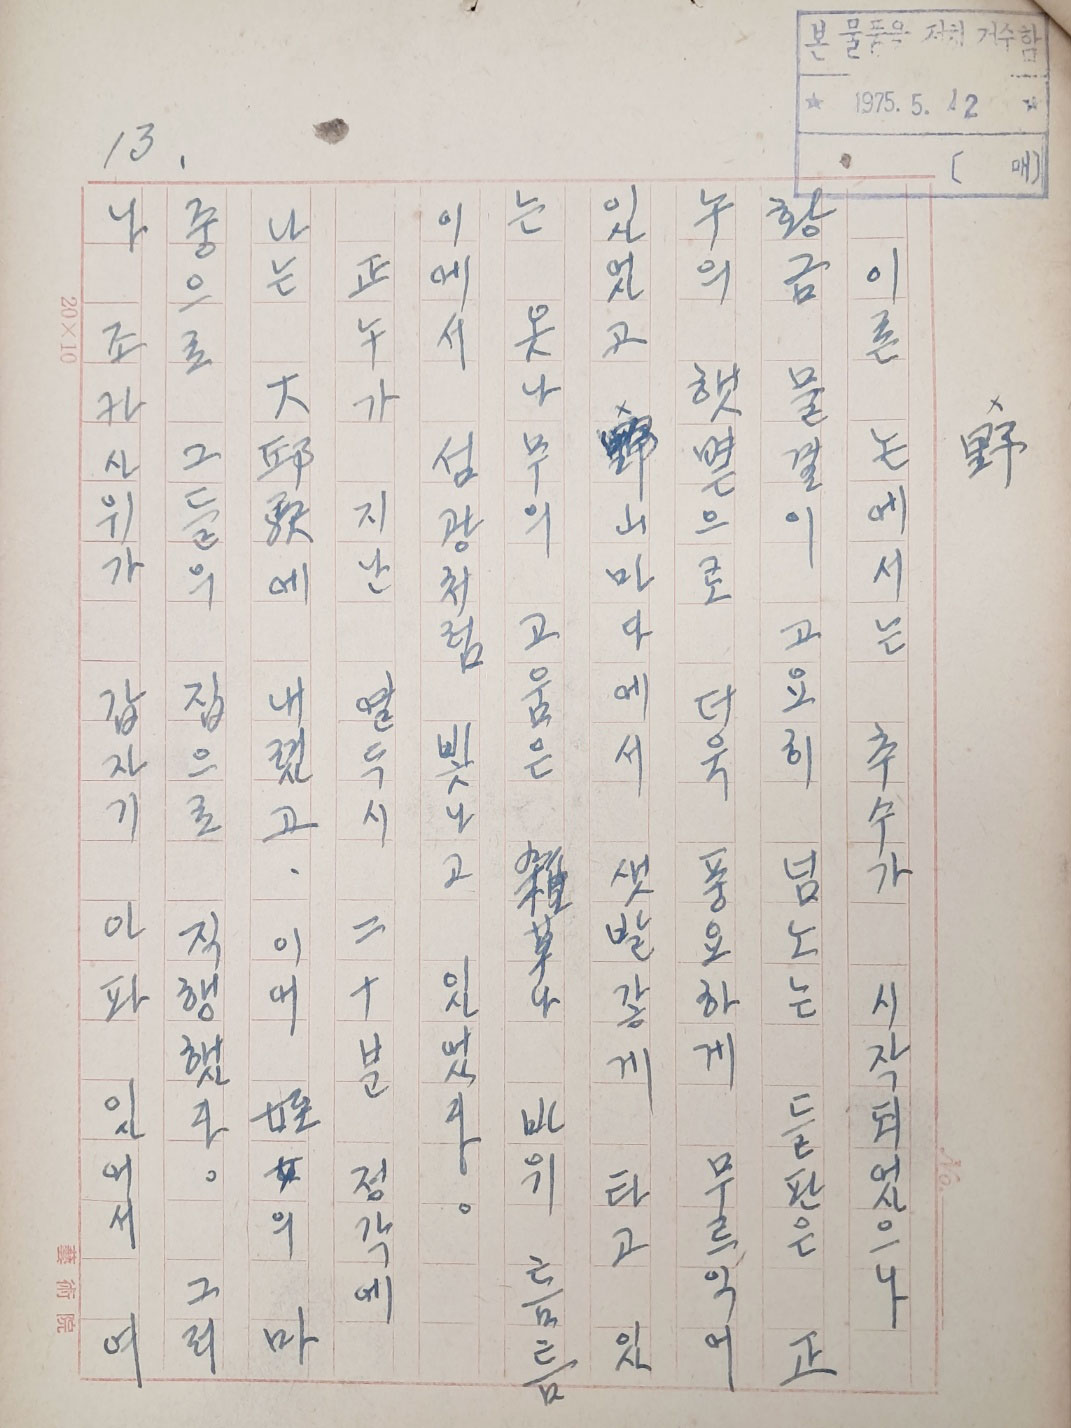 본 물품을 정히 검수함
★ 1975. 5. 12 ★
( 매)
13.
× 野
이른 논에서는 추수가 시작되었으나
황금 물결이 고요히 넘노는 들판은 正
午의 햇볕으로 더욱 풍요하게 무르익어
있었고 野山마다에서 샛발갛게 타고 있
는 옷나무의 고움은 雜草나 바위 틈틈
이에서 섬광처럼 빛나고 있었다。
正午가 지난 열두시 二十분 정각에
나는 大邱驛에 내렸고. 이어 姪女의 마
중으로 그들의 집으로 직행했다。 그러
나 조카사위가 갑자기 아파 있어서 여
No.
20×10
藝術院